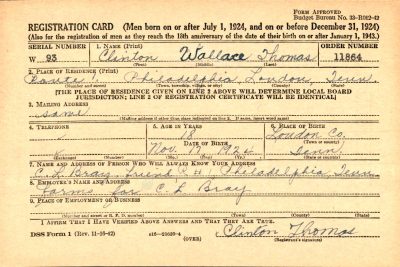 FORM APPROVED
Budget Bureau No. 33-R012-42
REGISTRATION CARD (Men born on or after July 1, 1924, and on or before December 31, 1924)
(Also for the registration of men as they reach the 18th anniversary of the date of their birth on or after January 1, 1943.)
SERIAL NUMBER 1. NAME (Print) ORDER NUMBER
W 93 Clinton Wallace Thomas 11864
(First) (Middle) (Last)
2. PLACE OF RESIDENCE (Print)
Philadelphia Loudon Tenn
(Number and street) (Town, township, village, or city) (County) (State)
[THE PLACE OF RESIDENCE GIVEN ON LINE 2 ABOVE WILL DETERMINE LOCAL BOARD
JURISDICTION; LINE 2 OF REGISTRATION CERTIFICATE WILL BE IDENTICAL]
3. MAILING ADDRESS
Same
[Mailing address if other than place indicated on line 2. If same, insert word same]
4. TELEPHONE 5. AGE IN YEARS 6. PLACE OF BIRTH
18 Loudon Co.
DATE OF BIRTH (Town or county)
Nov 17 1924 Tenn
(Exchange) (Number) (Mo.) (Day) (Yr.) (State or country)
7. NAME AND ADDRESS OF PERSON WHO WILL ALWAYS KNOW YOUR ADDRESS
C L Bray, friend Philadelphia Tenn
8. EMPLOYER'S NAME AND ADDRESS
Farms for C L Bray
9. PLACE OF EMPLOYMENT OR BUSINESS
(Number and street or R. F. D. number) (Town) (County) (State)
I AFFIRM THAT I HAVE VERIFIED ABOVE ANSWERS AND THAT THEY ARE TRUE.
DSS Form 1 (Rev. 11-16-42) (OVER) Clinton Thomas
(Registrant's signature)